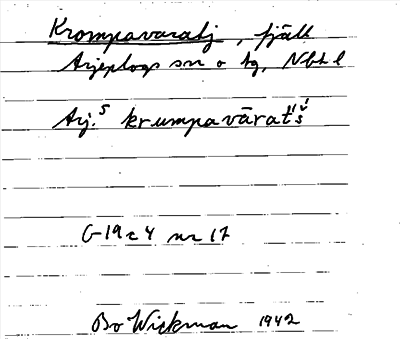 Krompavaratj, fjäll
Arjeplogs sn o tg, Nbt l
Arj. S krumpavārat́š́
G19c4 nr 17
Bo Wickman 1942